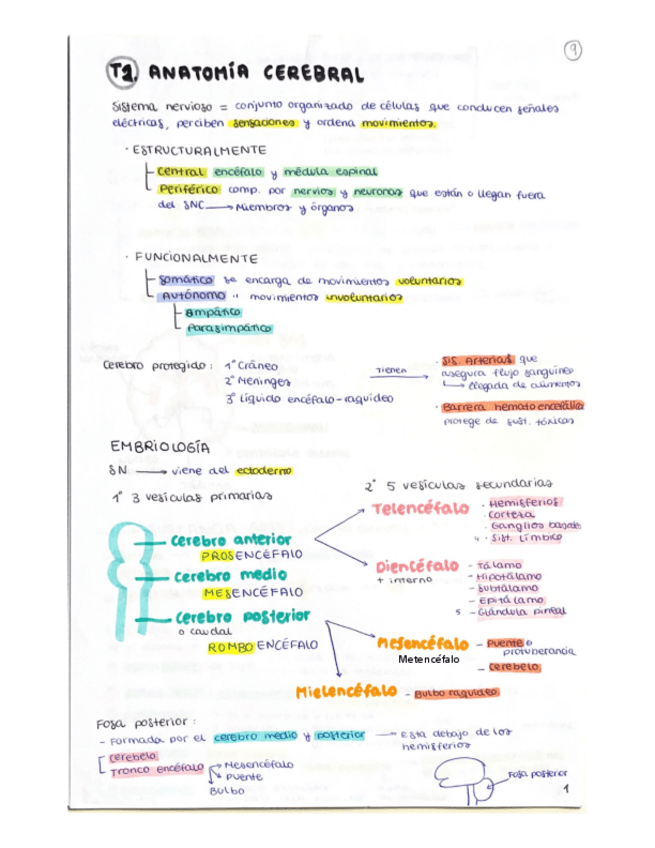 9
T1. ANATOMÍA CEREBRAL
Sistema nervioso = conjunto organizado de células que conducen señales
eléctricas, perciben sensaciones y ordena movimientos.
· ESTRUCTURALMENTE
Central encéfalo y médula espinal
Periférico comp. por nervios y neuronas que están o llegan fuera
del SNC → Miembros y órganos
· FUNCIONALMENTE
Somático se encarga de movimientos voluntarios
Autónomo " movimientos involuntarios
Simpático
Parasimpático
Cerebro protegido: 1º Cráneo
2º Meninges
3º Líquido encéfalo-raquídeo
Tienen
· Sis. Arterias que
asegura flujo sanguíneo
→ llegada de alimentos
· Barrera hemato encefálica
protege de sust. tóxicas
EMBRIOLOGÍA
SN → viene del ectodermo
1º 3 vesículas primarias
Cerebro anterior
PROSENCÉFALO
Cerebro medio
MESENCÉFALO
Cerebro posterior
o caudal
ROMBOENCÉFALO
2º 5 vesículas secundarias
Telencéfalo
· Hemisferios
· Corteza
· Ganglios basales
4 · Sist. Límbico
Diencéfalo
+ interno
- Tálamo
- Hipotálamo
- Subtálamo
- Epitálamo
5 - Glándula pineal
Mesencéfalo - Puente o
protuberancia
Metencéfalo
- Cerebelo
Mielencéfalo - Bulbo raquídeo
Fosa posterior:
- Formada por el cerebro medio y posterior → Esta debajo de los
hemisferios
Cerebelo
Tronco encéfalo → Mesencéfalo
→ Puente
Bulbo
Fosa posterior
1